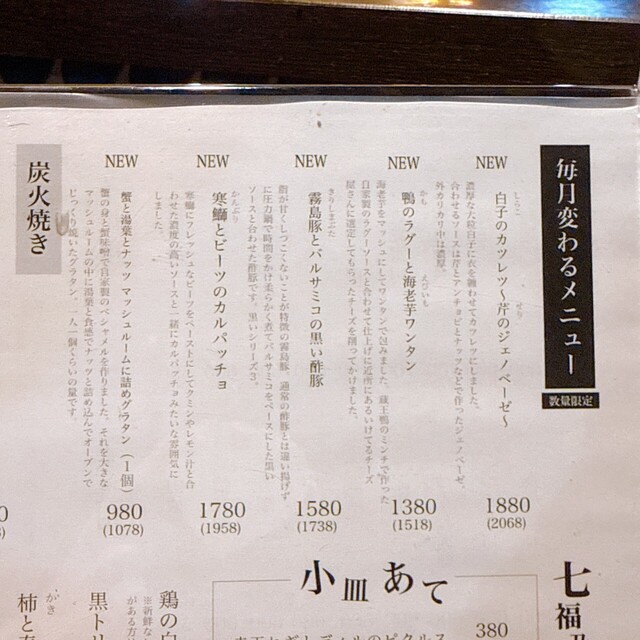 毎月変わるメニュー
数量限定
NEW
しらこ
せり
白子のカツレツ〜芹のジェノベーゼ〜
濃厚な大粒白子に衣を纏わせてカツレツにしました。
合わせるソースは芹とアンチョビとナッツなどで作ったジェノベーゼ。
外カリカリ中は濃厚。
1880
(2068)
NEW
かも
えびいも
鴨のラグーと海老芋ワンタン
海老芋をマッシュにしてワンタンで包みました。蔵王鴨のミンチで作った
自家製のラグーソースと合わせて仕上げに近所にあるいけてるチーズ
屋さんに選定してもらったチーズを削ってかけました。
1380
(1518)
NEW
きりしまぶた
霧島豚とバルサミコの黒い酢豚
脂が甘くしつこくないことが特徴の霧島豚。通常の酢豚とは違い揚げず
に圧力鍋で時間をかけ柔らかく煮てバルサミコをベースにした黒い
ソースと合わせた酢豚です。黒いシリーズ3。
1580
(1738)
NEW
かんぶり
寒鰤とビーツのカルパッチョ
寒鰤にフレッシュなビーツをペーストにしてクミンやレモン汁と合
わせた濃度の高いソースと一緒にカルパッチョみたいな雰囲気に
しました。
1780
(1958)
NEW
蟹と湯葉とナッツ マッシュルームに詰めグラタン（1個）
蟹の身と蟹味噌で自家製のベシャメルを作りました。それを大きな
マッシュルームの中に湯葉と食感でナッツと詰め込んでオーブンで
じっくり焼いたグラタン。一人一個ぐらいの量です。
980
(1078)
炭火焼き
七福
小皿あて
380
鶏の白
※新鮮な
がある方
黒トリ
かき
柿と春